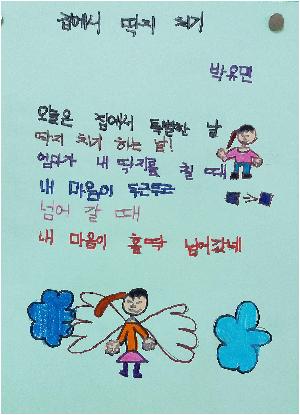 집에서 딱지 치기
박유면
오늘은 집에서 특별한 날
딱지 치기 하는 날!
엄마가 내 딱지를 칠 때
내 마음이 두근두근
넘어 갈 때
내 마음이 홀딱 넘어갔네